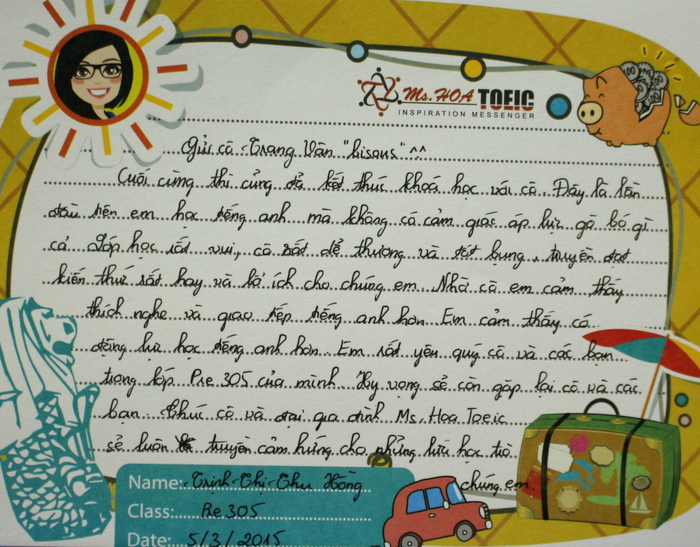 Ms. HOA TOEIC
INSPIRATION MESSENGER
Gửi cô Trang Vân "bisous" ^^
Cuối cùng thì cũng đã kết thúc khoá học với cô. Đây là lần
đầu tiên em học tiếng anh mà không có cảm giác áp lực gò bó gì
cả. Lớp học rất vui, cô rất dễ thương và tốt bụng, truyền đạt
kiến thức rất hay và bổ ích cho chúng em. Nhờ cô em cảm thấy
thích nghe và giao tiếp tiếng anh hơn. Em cảm thấy có
động lực học tiếng anh hơn. Em rất yêu quý cô và các bạn
trong lớp Pre 305 của mình. Hy vọng sẽ còn gặp lại cô và các
bạn. Chúc cô và đại gia đình Ms Hoa Toeic
sẽ luôn truyền cảm hứng cho những lứa học trò
chúng em
Name: Trịnh Thị Thu Hồng
Class: Pre 305
Date: 5/3/2015